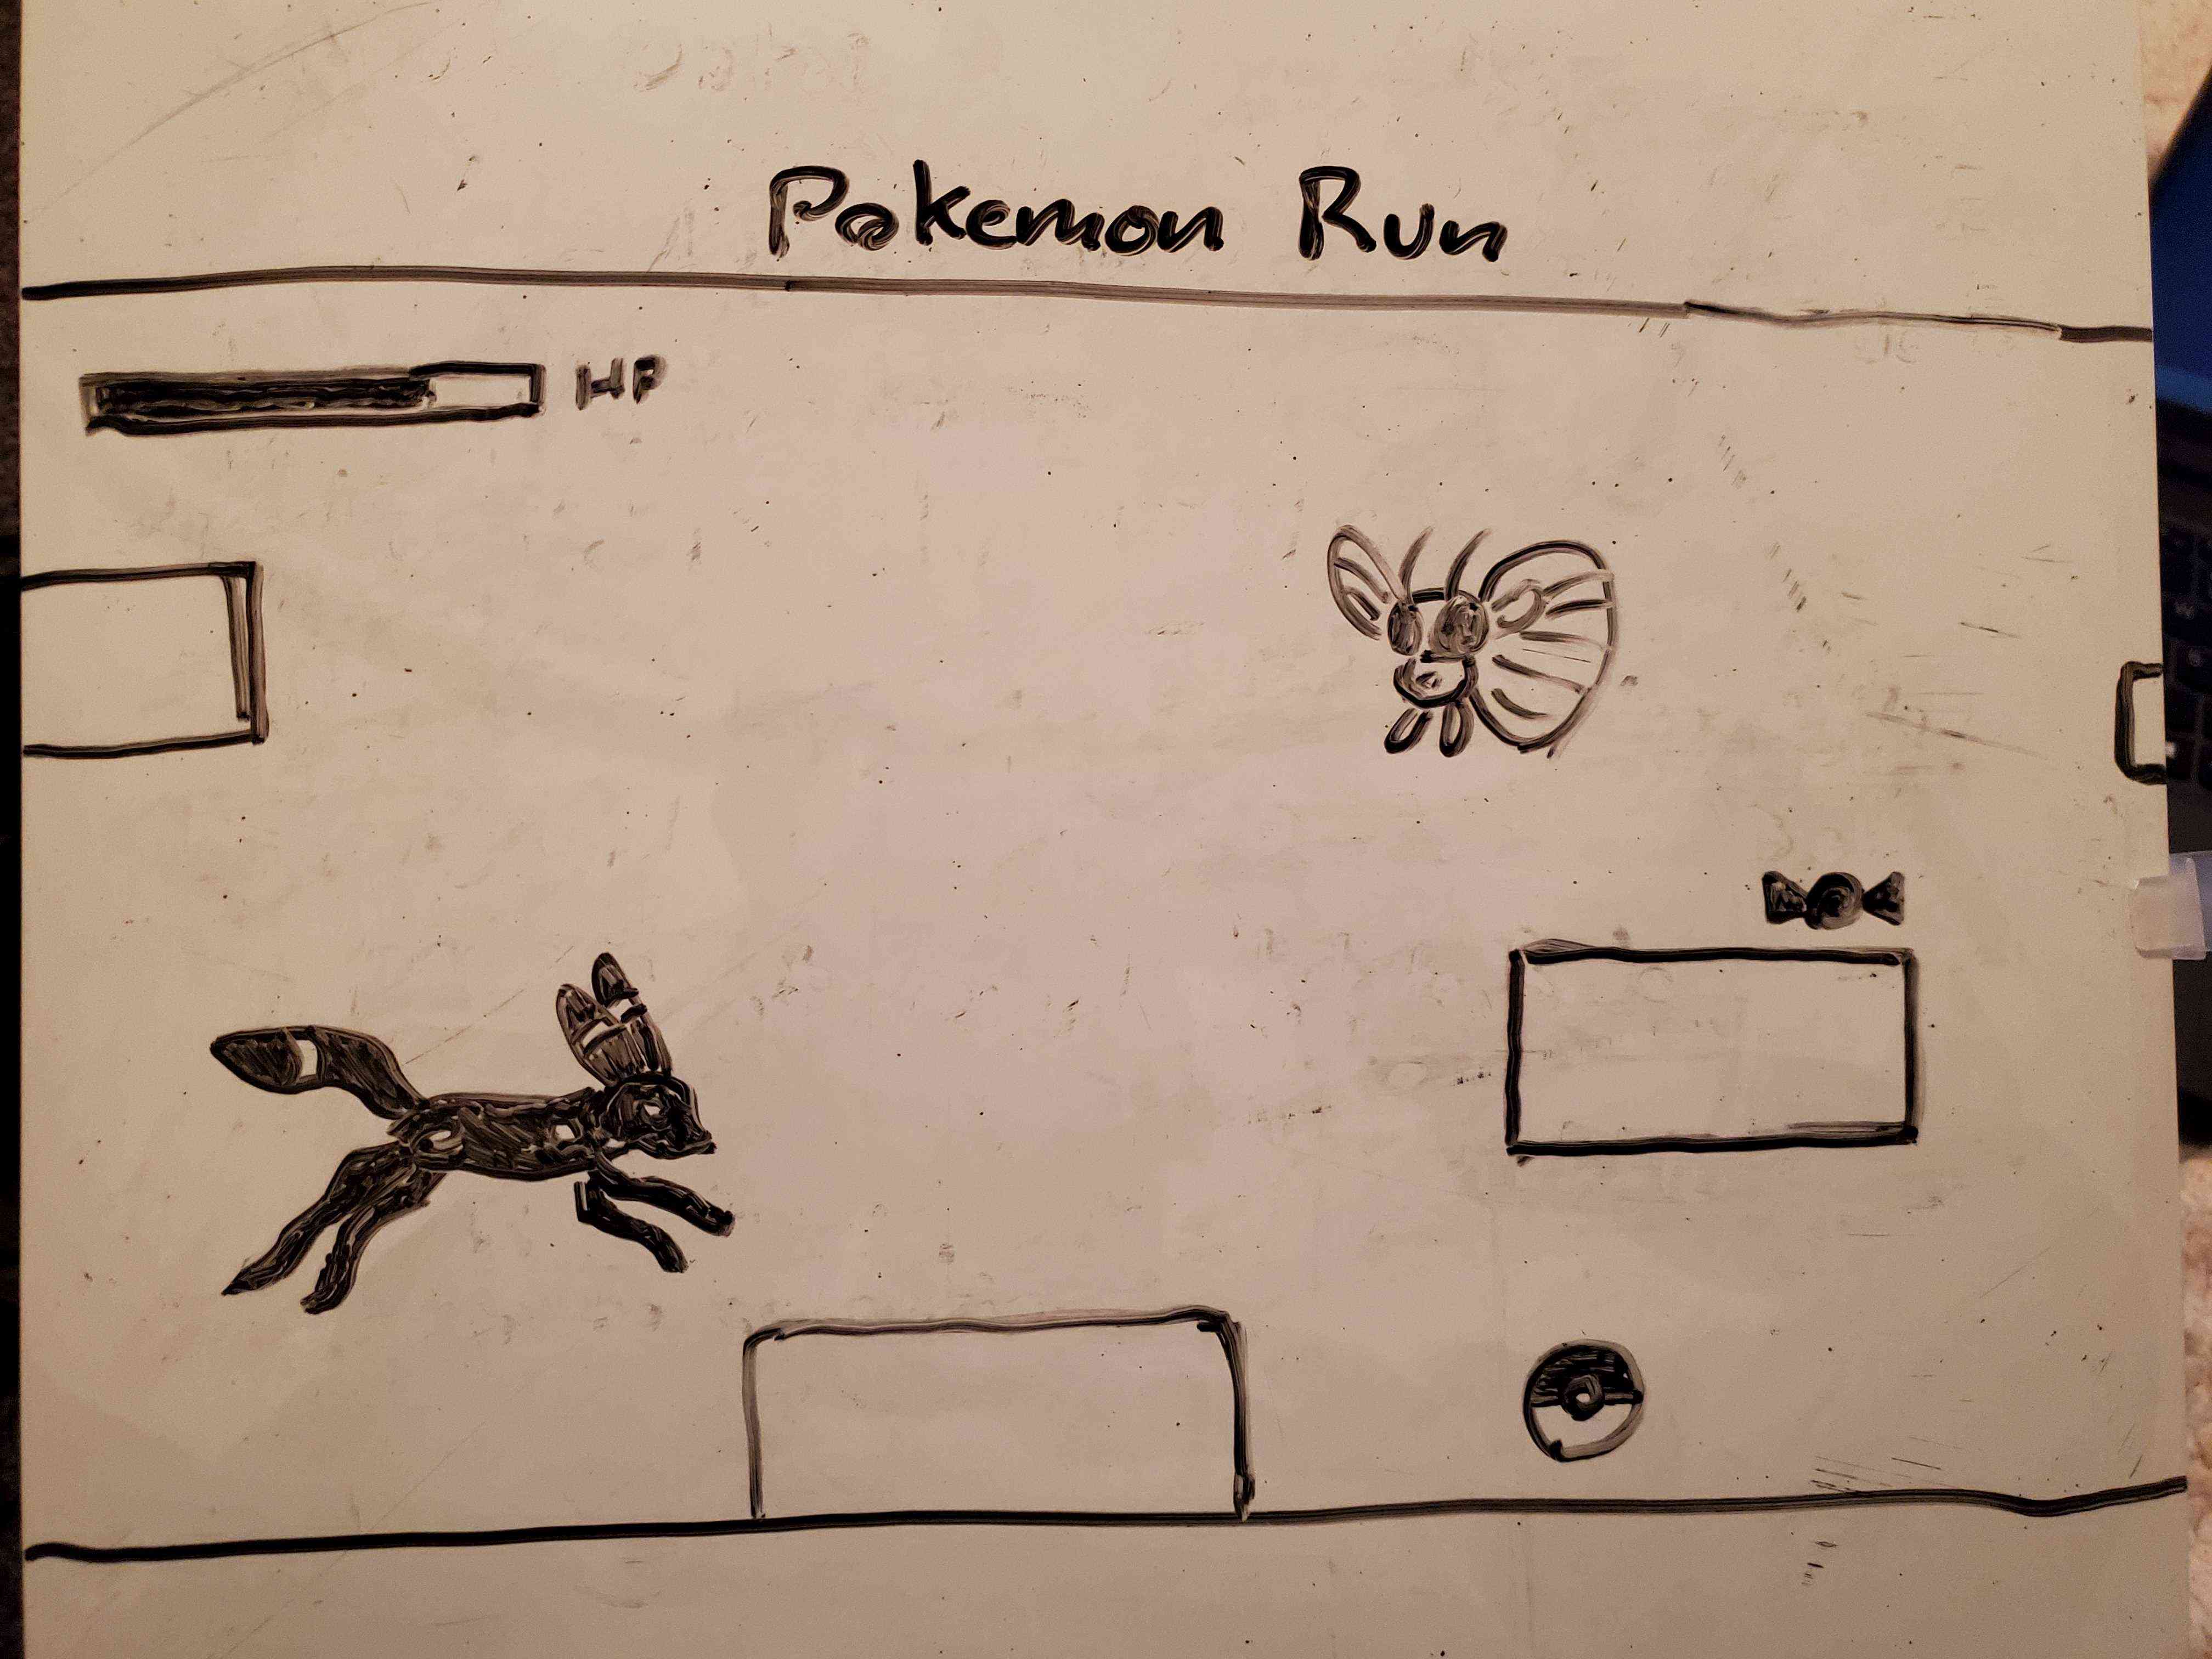 Pokemon Run
HP